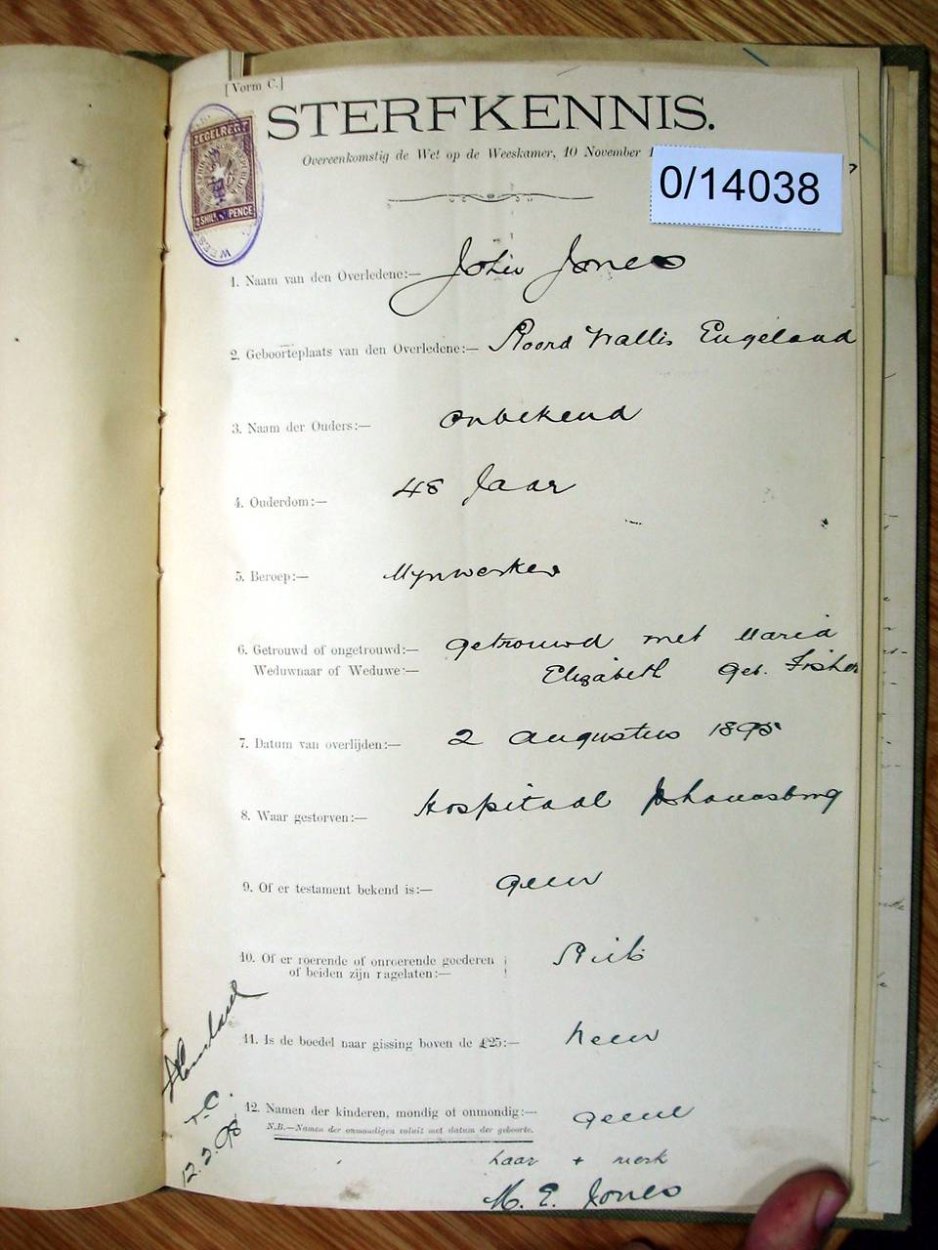 [Vorm C.]
STERFKENNIS.
Overeenkomstig de Wet op de Weeskamer, 10 November
0/14038
ZEGELREGT
PENCE
1. Naam van den Overledene:— John Jones
2. Geboorteplaats van den Overledene:— Noord Wallis Engeland
3. Naam der Ouders:— onbekend
4. Ouderdom:— 48 Jaar
5. Beroep:— Mynwerker
6. Getrouwd of ongetrouwd:— getrouwd met Maria
Weduwnaar of Weduwe:— Elizabeth geb. Fisher
7. Datum van overlijden:— 2 Augustus 1895
8. Waar gestorven:— Hospitaal Johannesburg
9. Of er testament bekend is:— geen
10. Of er roerende of onroerende goederen
of beiden zijn nagelaten:— Niets
11. Is de boedel naar gissing boven de £25:— Neen
12. Namen der kinderen, mondig of onmondig:— geene
N.B.—Namen der onmondigen voluit met datum der geboorte.
haar + merk
M. E. Jones
12.2.98